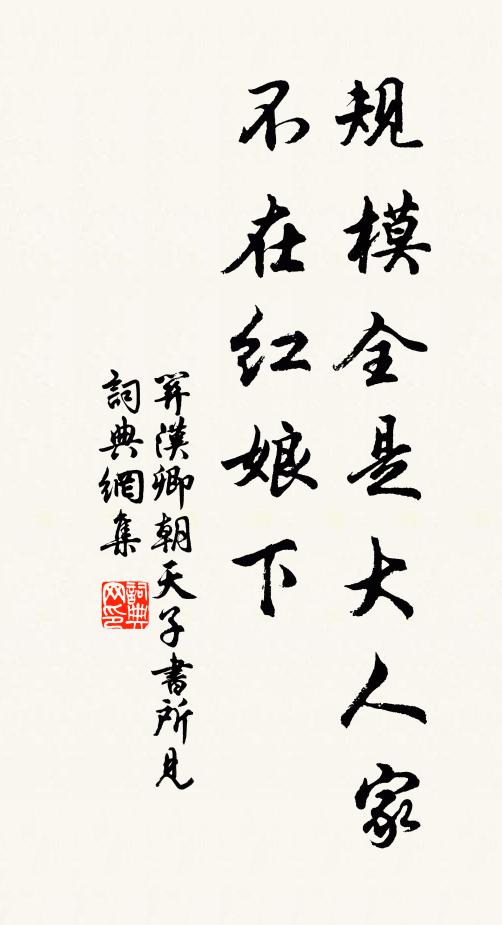 规模全是大人家
不在红娘下
關漢卿朝天子書所見
詞典網集
詞典网印